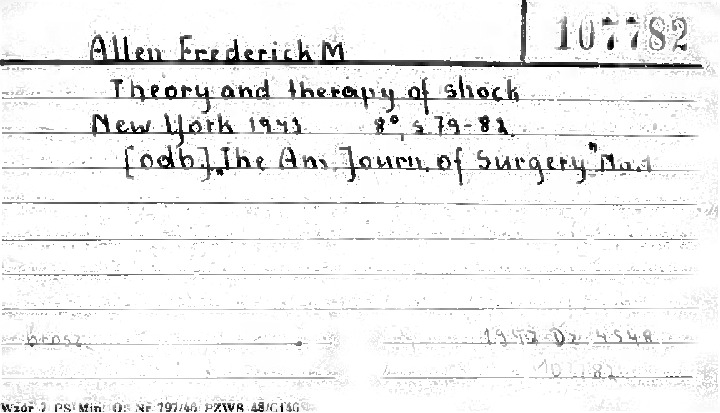 107782
Allen Frederick M
Theory and therapy of shock
New York 1943 8°, s 79-82
[odb] „The Am. Journ. of Surgery" No. 1
brosz.
1947 Dz 4548
107782
Wzór 7 PS Min. O. Nr 797/46 PZWS 48/G146